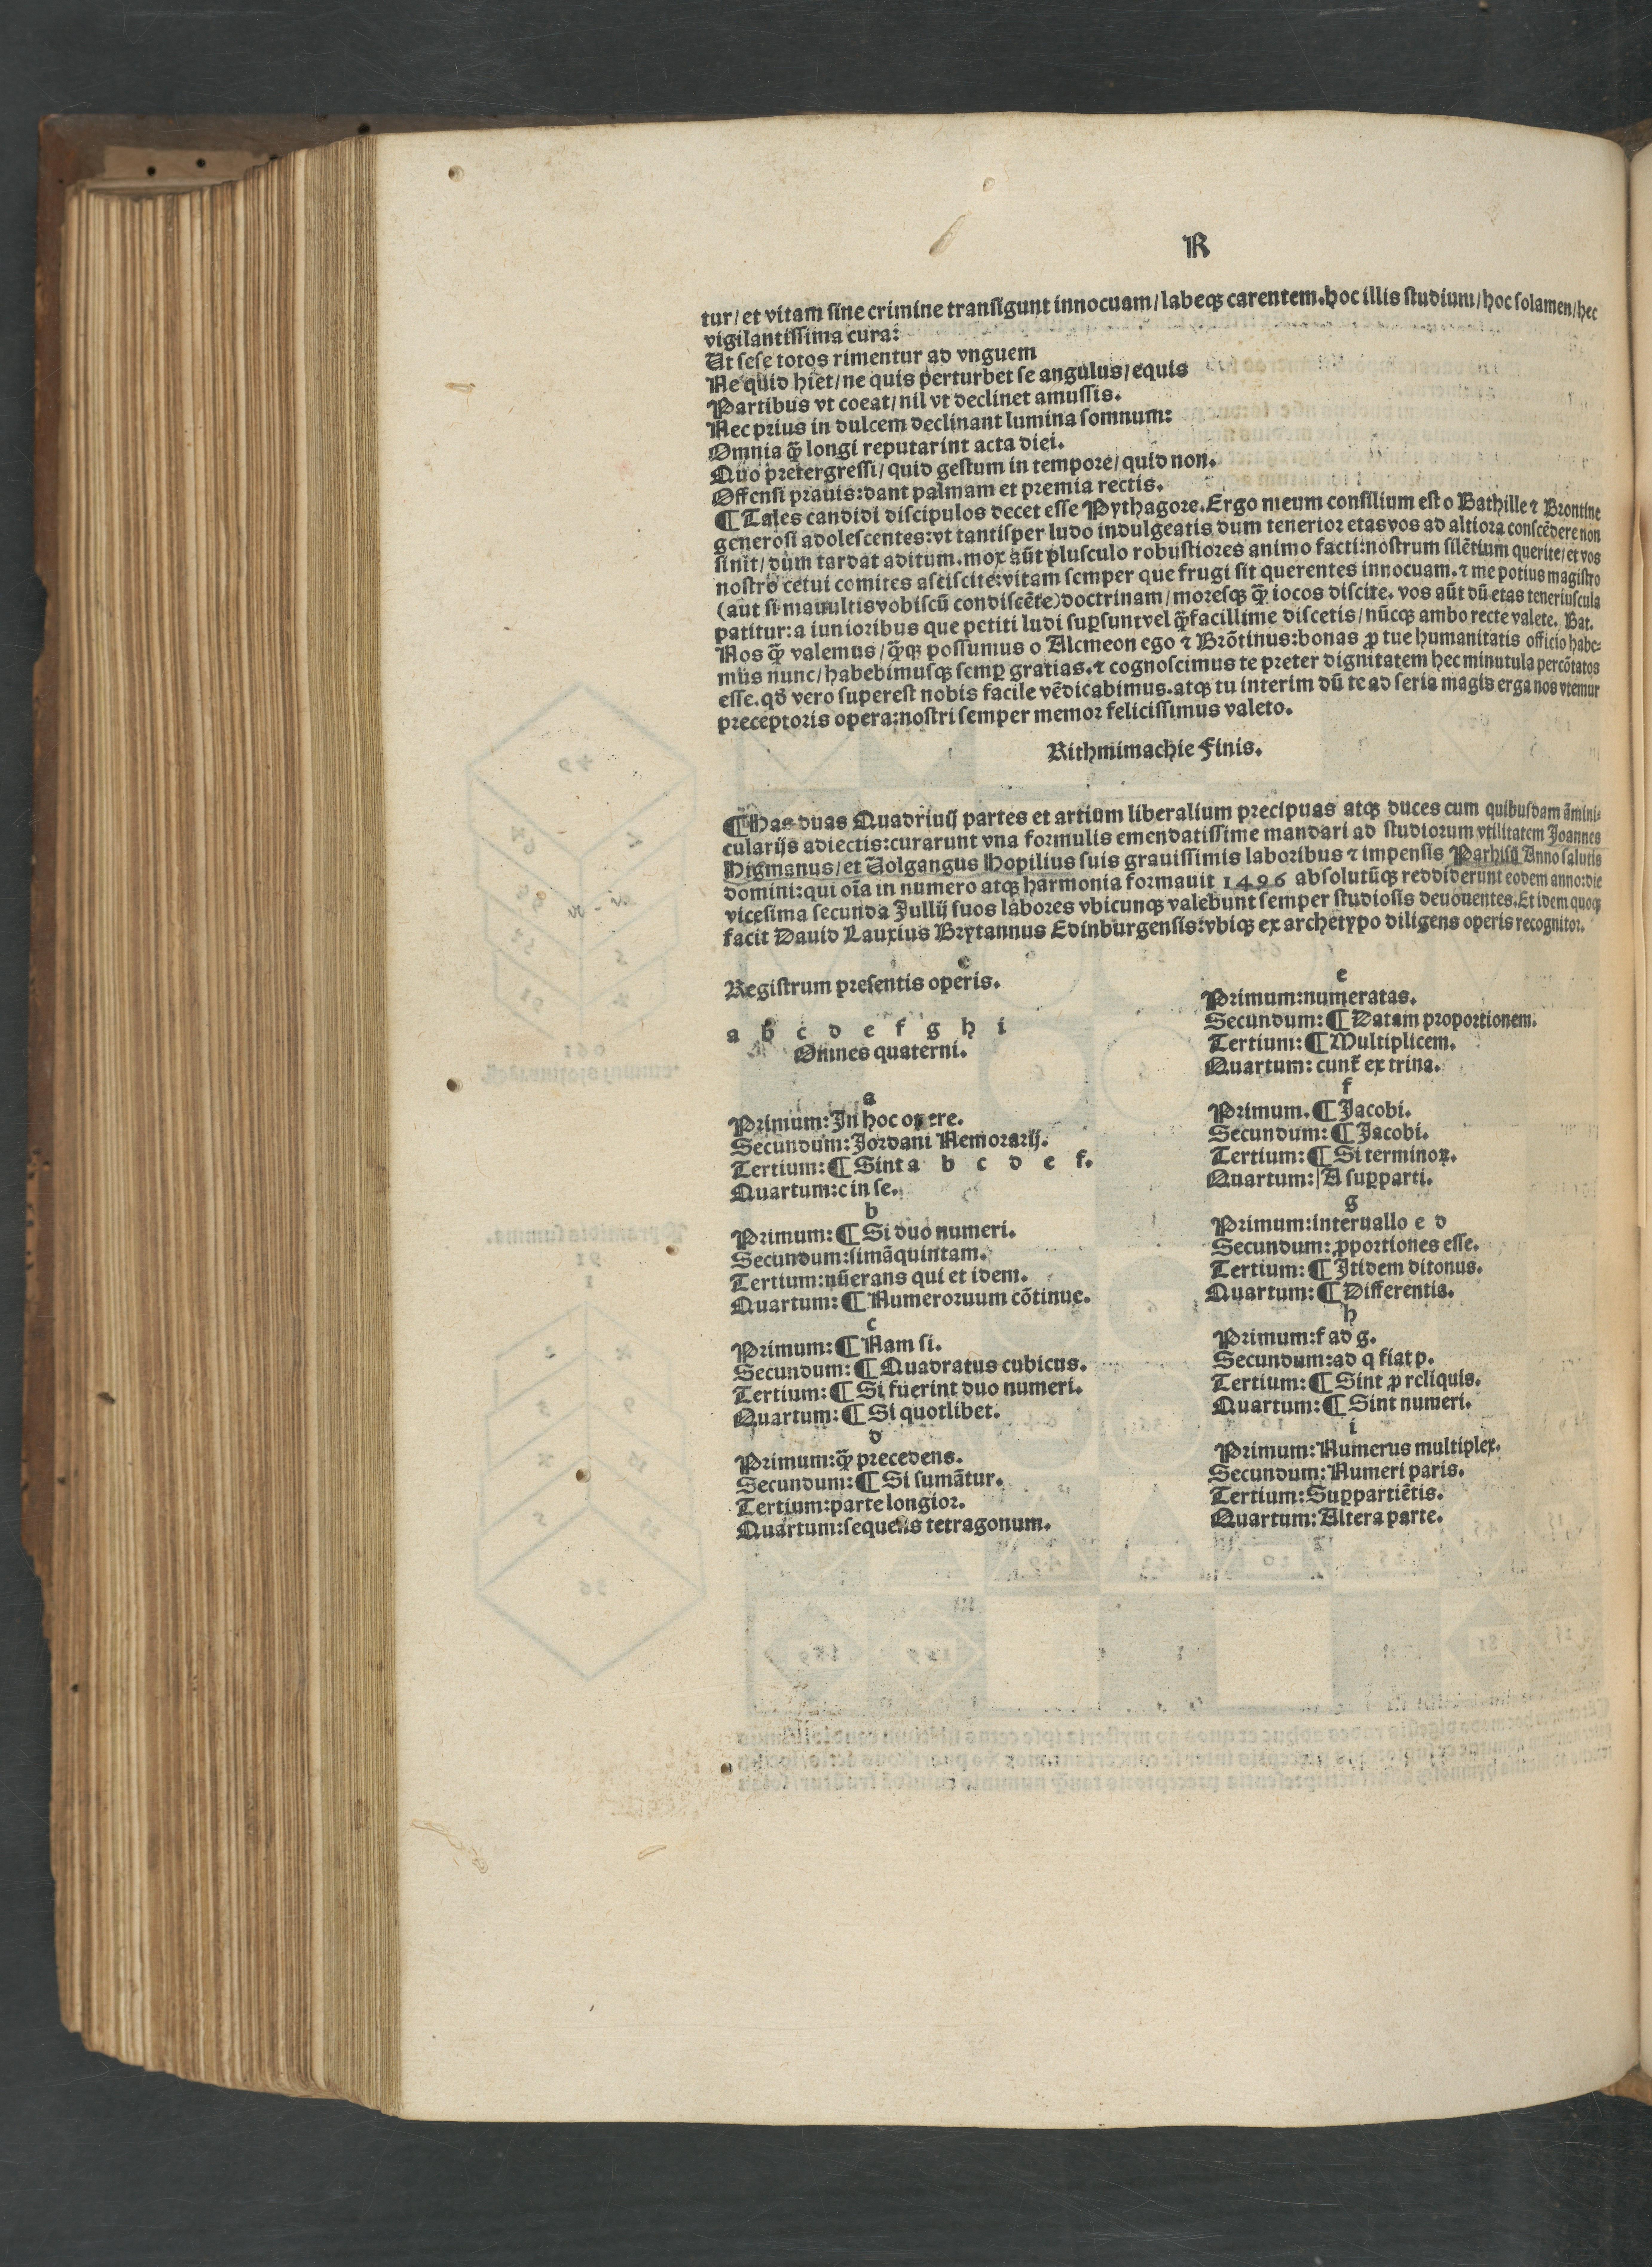 R
tur/ et vitam sine crimine transigunt innocuam/ labeqꝫ carentem. hoc illis studium/ hoc solamen/ hec
vigilantissima cura:
Ut sese totos rimentur ad vnguem
Ne quid hiet/ ne quis perturbet se angulus/ equis
Partibus vt coeat/ nil vt declinet amussis.
Nec prius in dulcem declinant lumina somnum:
Omnia q̃ longi reputarint acta diei.
Quo pretergressi/ quid gestum in tempore/ quid non.
Offensi prauis: dant palmam et premia rectis.
¶ Tales candidi discipulos decet esse Pythagore. Ergo meum consilium est o Bathille ⁊ Brontine
generosi adolescentes: vt tantisper ludo indulgeatis dum tenerior etas vos ad altiora conscẽdere non
sinit/ dum tardat aditum. mox aũt plusculo robustiores animo facti: nostrum silẽtium querite/ et vos
nostro cetui comites asciscite: vitam semper que frugi sit querentes innocuam. ⁊ me potius magistro
(aut si mauultis vobiscũ condiscẽte) doctrinam/ moresqꝫ q̃ iocos discite. vos aũt dũ etas teneriuscula
patitur: a iunioribus que petiti ludi suꝑsunt vel q̃ facillime discetis/ nũcqꝫ ambo recte valete. Bat.
Nos q̃ valemus/ q̃qꝫ possumus o Alcmeon ego ⁊ Brõtinus: bonas ꝓ tue humanitatis officio habe-
mus nunc/ habebimusqꝫ semꝑ gratias. ⁊ cognoscimus te preter dignitatem hec minutula percõtatos
esse. qđ vero superest nobis facile vẽdicabimus. atqꝫ tu interim dũ te ad seria magis erga nos vtemur
preceptoris opera: nostri semper memor felicissimus valeto.
Rithmimachie Finis.
¶ Has duas Quadriuij partes et artium liberalium precipuas atqꝫ duces cum quibusdam ãmini-
cularijs adiectis: curarunt vna formulis emendatissime mandari ad studiorum vtilitatem Joannes
Higmanus/ et Volgangus Hopilius suis grauissimis laboribus ⁊ impensis Parhisij Anno salutis
domini: qui oĩa in numero atqꝫ harmonia formauit 1496 absolutũqꝫ reddiderunt eodem anno: die
vicesima secunda Jullij suos labores vbicunqꝫ valebunt semper studiosis deuouentes. Et idem quoqꝫ
facit Dauid Lauxius Brytannus Edinburgensis: vbiqꝫ ex archetypo diligens operis recognitor.
Registrum presentis operis.
a b c d e f g h i
Omnes quaterni.
a
Primum: In hoc opere.
Secundum: Jordani Nemorarij.
Tertium: ¶ Sint a b c d e f.
Quartum: c in se.
b
Primum: ¶ Si duo numeri.
Secundum: simãquintam.
Tertium: nũerans qui et idem.
Quartum: ¶ Numeroruum cõtinue.
c
Primum: ¶ Nam si.
Secundum: ¶ Quadratus cubicus.
Tertium: ¶ Si fuerint duo numeri.
Quartum: ¶ Si quotlibet.
d
Primum: q̃ precedens.
Secundum: ¶ Si sumãtur.
Tertium: parte longior.
Quartum: sequens tetragonum.
e
Primum: numeratas.
Secundum: ¶ Datam proportionem.
Tertium: ¶ Multiplicem.
Quartum: cunt̃ ex trina.
f
Primum. ¶ Jacobi.
Secundum: ¶ Jacobi.
Tertium: ¶ Si terminoꝝ.
Quartum: A suꝑparti.
g
Primum: interuallo e d
Secundum: ꝓportiones esse.
Tertium: ¶ Itidem ditonus.
Quartum: ¶ Differentia.
h
Primum: f ad g.
Secundum: ad q fiat p.
Tertium: ¶ Sint ꝓ reliquis.
Quartum: ¶ Sint numeri.
i
Primum: Numerus multiplex.
Secundum: Numeri paris.
Tertium: Suꝑpartiẽtis.
Quartum: Altera parte.